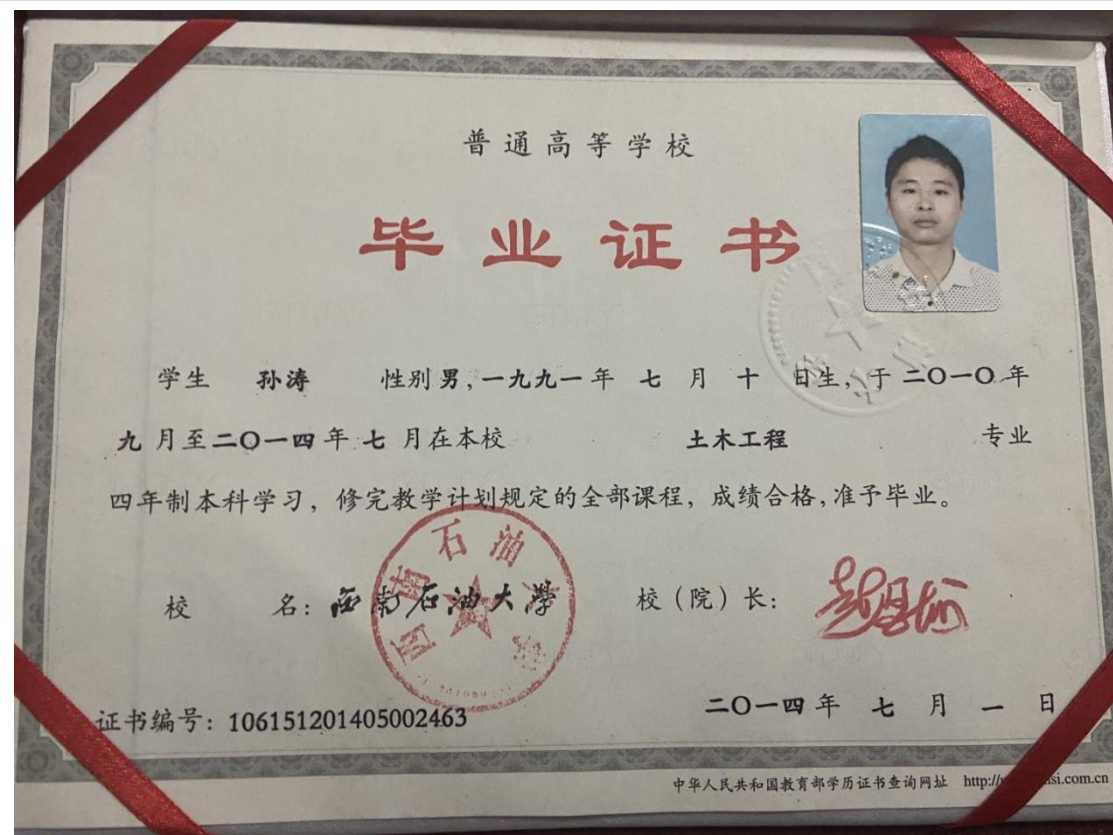 普通高等学校
毕业证书
学生 孙涛 性别男,一九九一年 七 月 十 日生,于二〇一〇年
九月至二〇一四年 七 月在本校 土木工程 专业
四年制本科学习,修完教学计划规定的全部课程,成绩合格,准予毕业。
校 名:西南石油大學 校(院)长:
西南石油大学
证书编号:106151201405002463 二〇一四年 七 月 一 日
中华人民共和国教育部学历证书查询网址 http://
si.com.cn